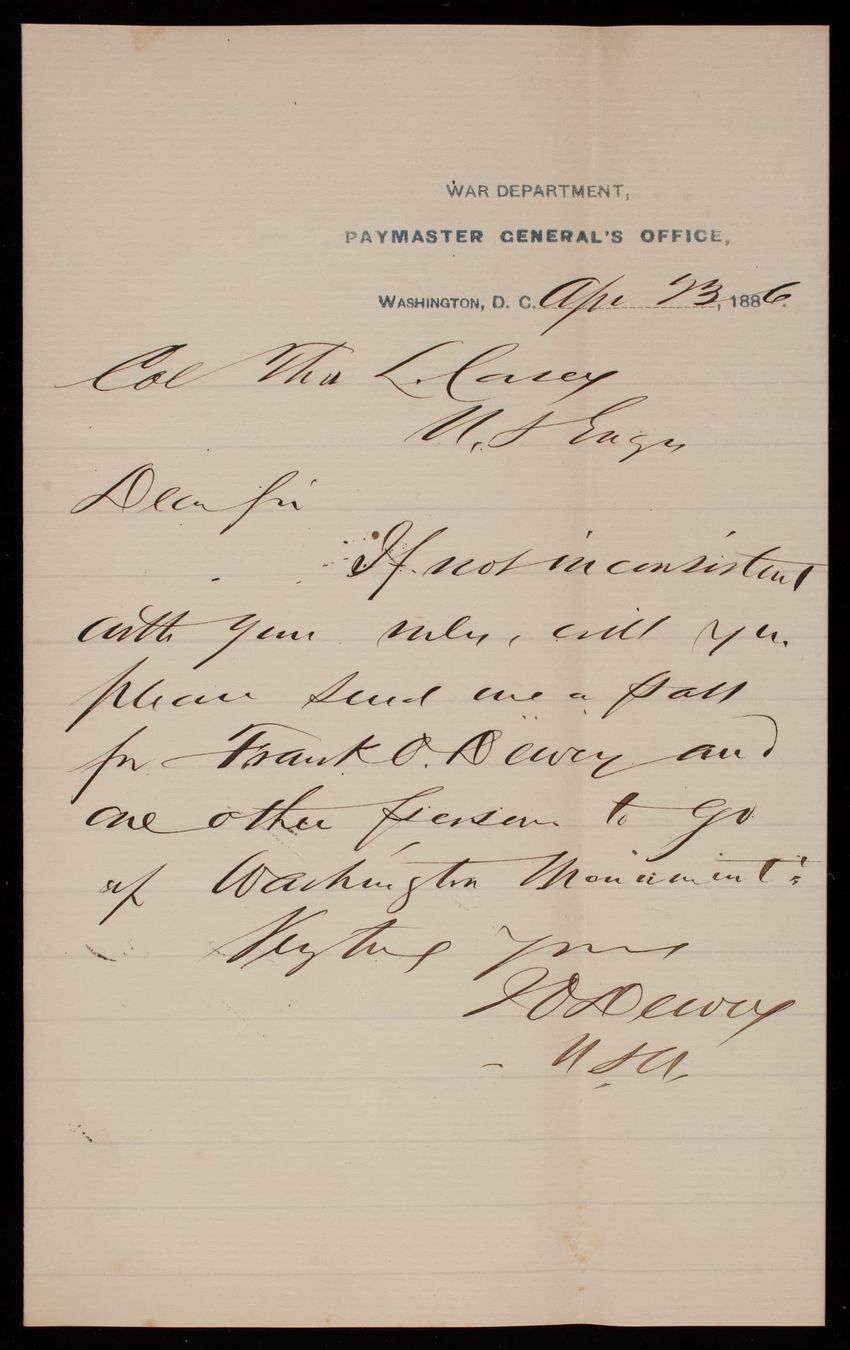 WAR DEPARTMENT,
PAYMASTER GENERAL'S OFFICE,
WASHINGTON, D. C. Apr 23, 1886.
Col Tho L. Casey
U. S Engrs
Dear Sir
If not inconsistent
with your rules, will you
please send me a pass
for Frank O. Dewey and
one other person to go
up Washington Monument:
Very truly yours
Dewey
U S A,